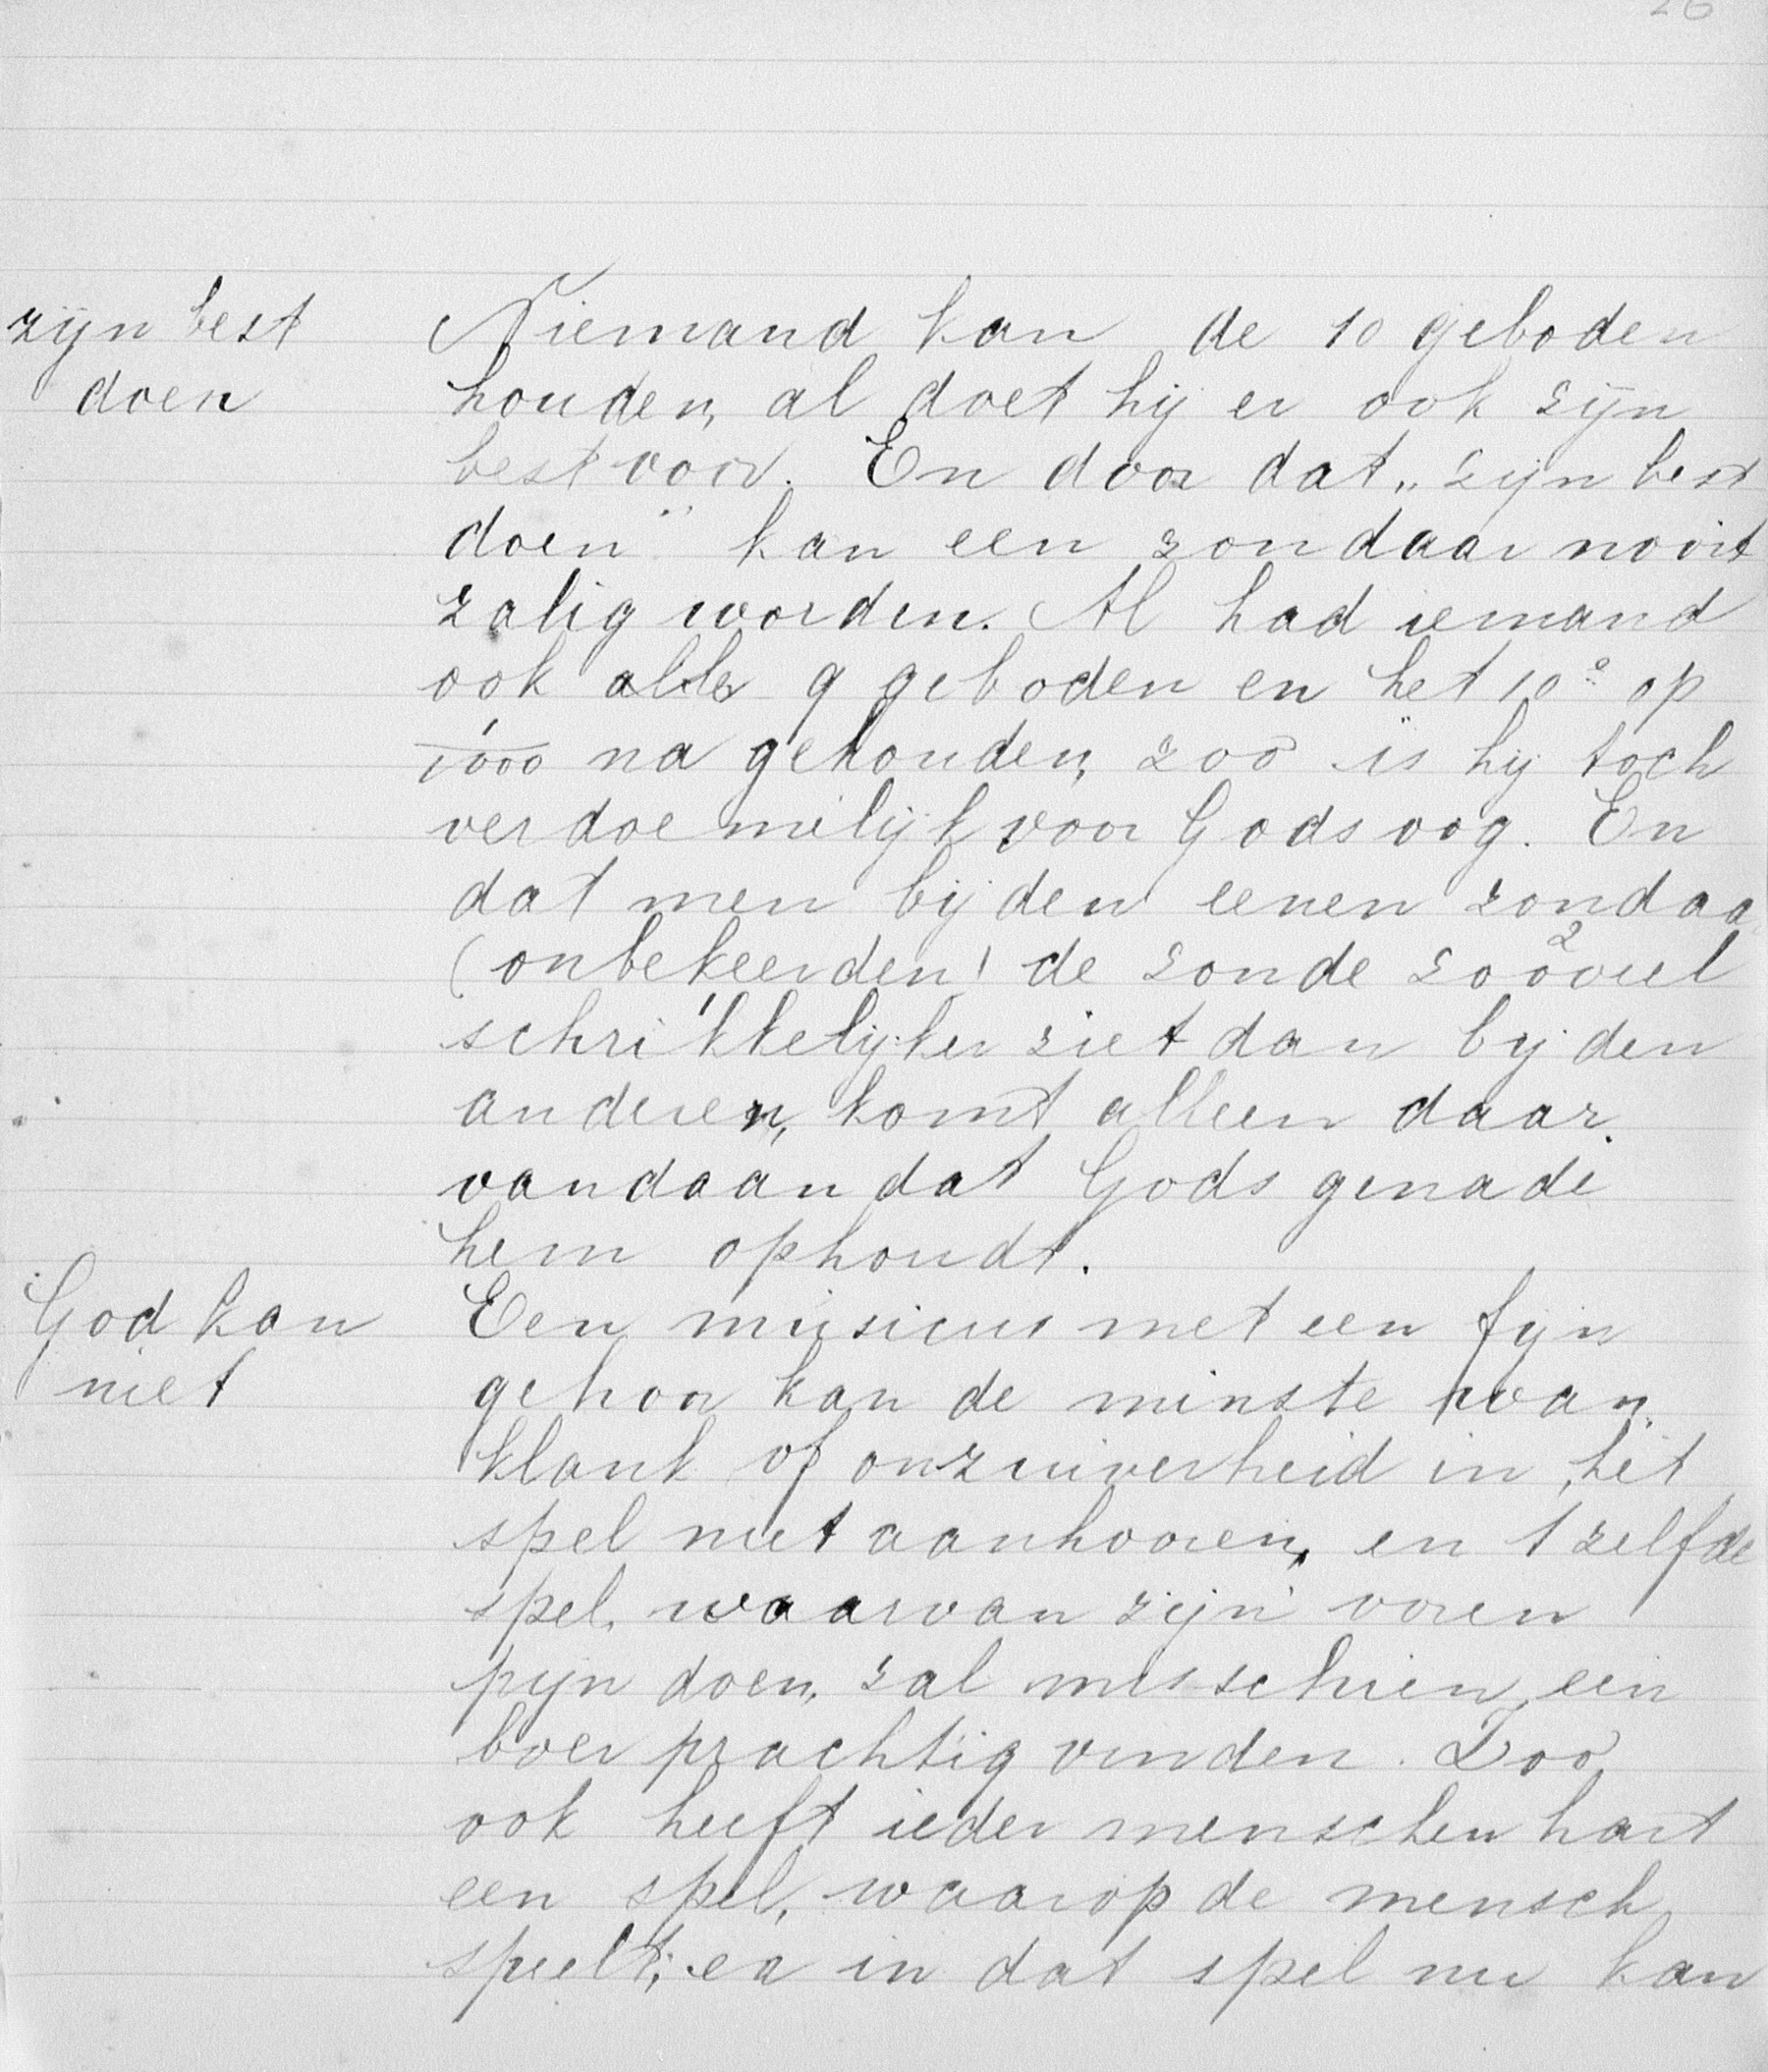 26
zijn best
doen
Niemand kan de 10 geboden
houden, al doet hij er ook zijn
best voor. En door dat „zijn best
doen” kan een zondaar nooit
zalig worden. Al had iemand
ook alle 9 geboden en het 10e op
1/1000 na gehouden, zoo is hij toch
verdoemelijk voor Gods oog. En
dat men bij den eenen zondaa
(onbekeerden) de zonde zoóveel
schrikkelijker ziet dan bij den
anderen, komt alleen daar
vandaan dat Gods genade
hem ophoudt.
God kan
niet
Een musicus met een fijn
gehoor kan de minste wan
klank of onzuiverheid in het
spel niet aanhooren, en 't zelfde
spel, waarvan zijn ooren
pijn doen, zal misschien een
boer prachtig vinden. Zoo
ook heeft ieder menschen hart
een spel, waarop de mensch
speelt; en in dat spel nu kan